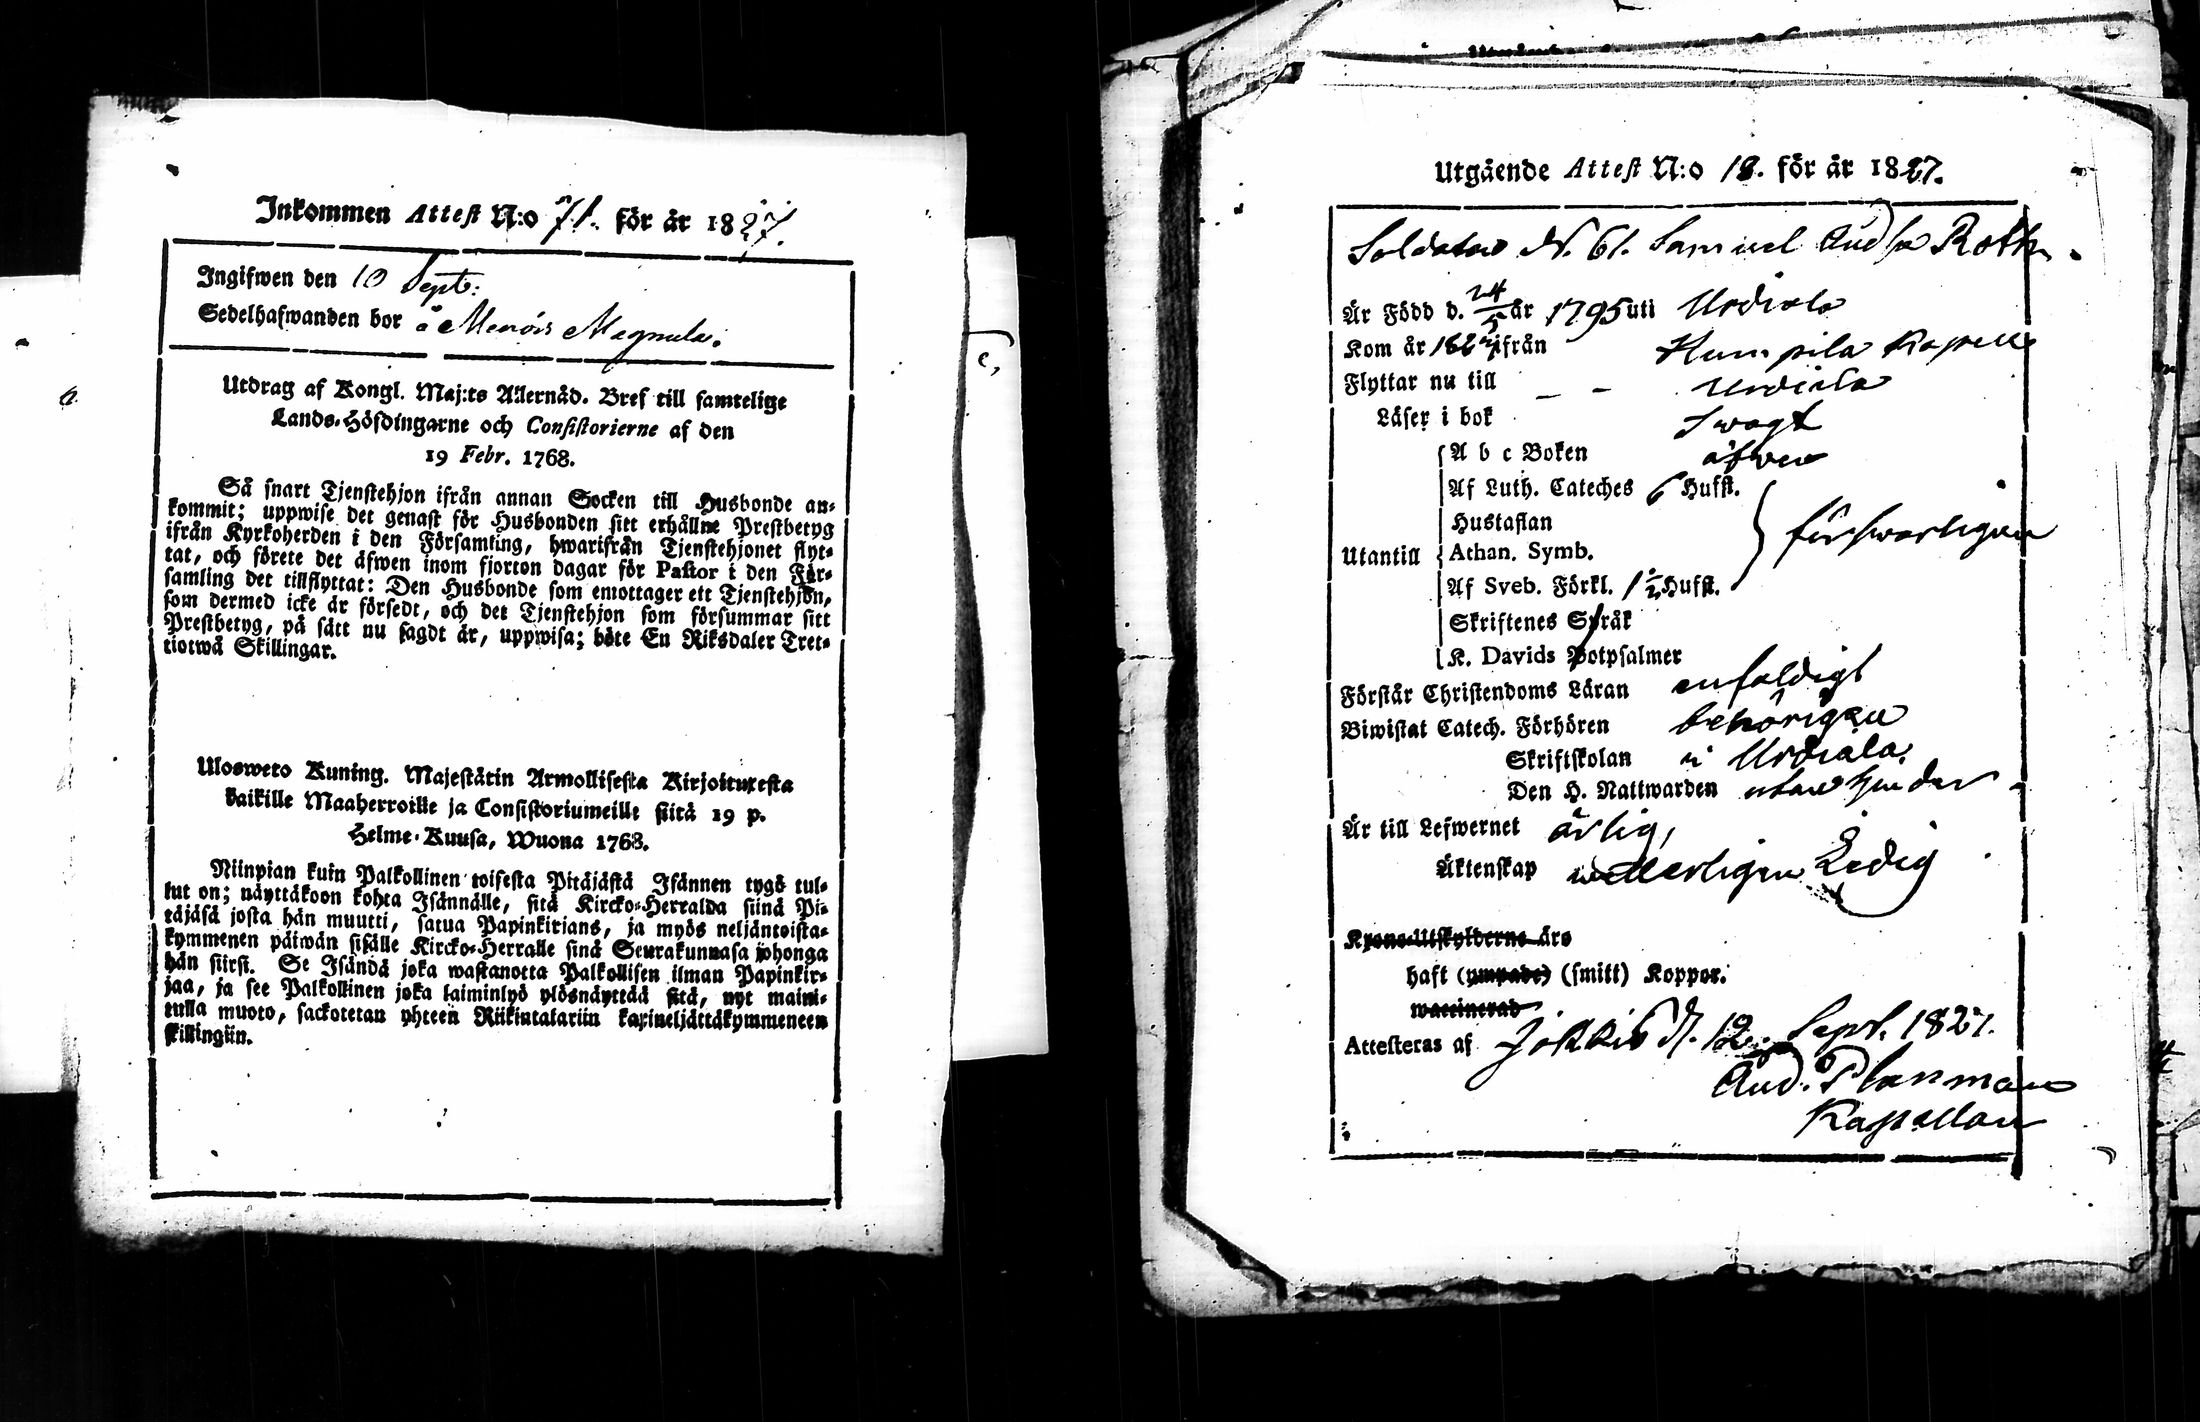 Inkommen Attest N:o 71. för år 1827.
Ingifwen den 10 Sept:
Sedelhafwanden bor å Menöis Magnula.
Utdrag af Kongl. Maj:ts Allernåd. Bref till samtelige
Lands-Höfdingarne och Consistorierne af den
19 Febr. 1768.
Så snart Tjenstehjon ifrån annan Socken till Husbonde an-
kommit; uppwise det genast för Husbonden sitt erhållne Prestbetyg
ifrån Kyrkoherden i den Församling, hwarifrån Tjenstehjonet flyt-
tat, och förete det äfwen inom fjorton dagar för Pastor i den För-
samling det tillflyttat: Den Husbonde som emottager ett Tjenstehjon,
som dermed icke är försedt, och det Tjenstehjon som försummar sitt
Prestbetyg, på sätt nu sagdt är, uppwisa; böte En Riksdaler Tret-
tiotwå Skillingar.
Ulosweto Kuning. Majestätin Armollisesta Kirjoituxesta
kaikille Maaherroille ja Consistoriumeille siitä 19 p.
Helme-Kuusa, Wuona 1768.
Niinpian kuin Palkollinen toisesta Pitäjästä Isännen tygö tul-
lut on; näyttäkoon kohta Isännälle, sitä Kircko-Herralda siinä Pi-
täjäsä josta hän muutti, satua Papinkirians, ja myös neljäntoista-
kymmenen päiwän sisälle Kircko-Herralle sinä Seurakunnasa johonga
hän siirsi. Se Isändä joka wastanotta Palkollisen ilman Papinkir-
jaa, ja see Palkollinen joka laiminlyö ylösnäyttää sitä, nyt maini-
tulla muoto, sackotetan yhteen Riikintalariin kaxineljättäkymmeneen
skillingiin.
Utgående Attest N:o 18. för år 1827.
Soldaten N. 61. Samuel And:sa Roth
Är Född d. 24/5 år 1795 uti Urdiala
Kom år 1824 ifrån Humpila Kapell
Flyttar nu till - - Urdiala
Läser i bok Swagt
A b c Boken äfwen
Af Luth. Cateches 6 Hufst.
Hustaflan
Utantill Athan. Symb. försvarligen
Af Sveb. Förkl. 1 1/2 Hufst.
Skriftenes Språk
K. Davids Botpsalmer
Förstår Christendoms Läran enfaldigt
Biwistat Catech. Förhören behörigen
Skriftskolan i Urdiala
Den H. Nattwarden utan hinder
Är till Lefwernet ärlig,
Äktenskap wetterligen Ledig
Krono-Utskylderne äro
haft (ympade) (smitt) Koppor.
waccinerad
Attesteras af Jokkis d. 12. Sept. 1827.
And. Planman
Kapellan